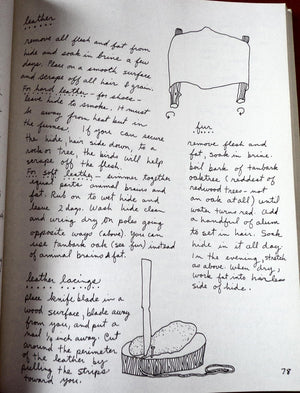 leather
remove all flesh and fat from
hide and soak in brine a few
days. Place on a smooth surface
and scrape off all hair & grain.
For hard leather - for shoes -
leave hide to smoke. It must
be away from heat but in
the fumes. If you can secure
the hide, hair side down, to a
rock or tree, the birds will help
scrape off the flesh.
For soft leather - simmer together
equal parts animal brains and
fat. Rub on to wet hide and
leave 2 days. Wash hide clean
and wring dry on poles going
opposite ways (above). You can
use tanbark oak (see fur) instead
of animal brains & fat.
leather lacings
place knife blade in a
wood surface, blade away
from you, and put a
nail 1/8 inch away. Cut
around the perimeter
of the leather by
pulling the strips
toward you.
fur
remove flesh and
fat, soak in brine.
boil bark of tanbark
oaktree (reddest of
redwood trees - not
an oak at all) until
water turns red. add
a handful of alum
to set in hair. Soak
hide in it all day.
In the evening, stretch
as above. When dry,
work fat into hairless
side of hide.
78